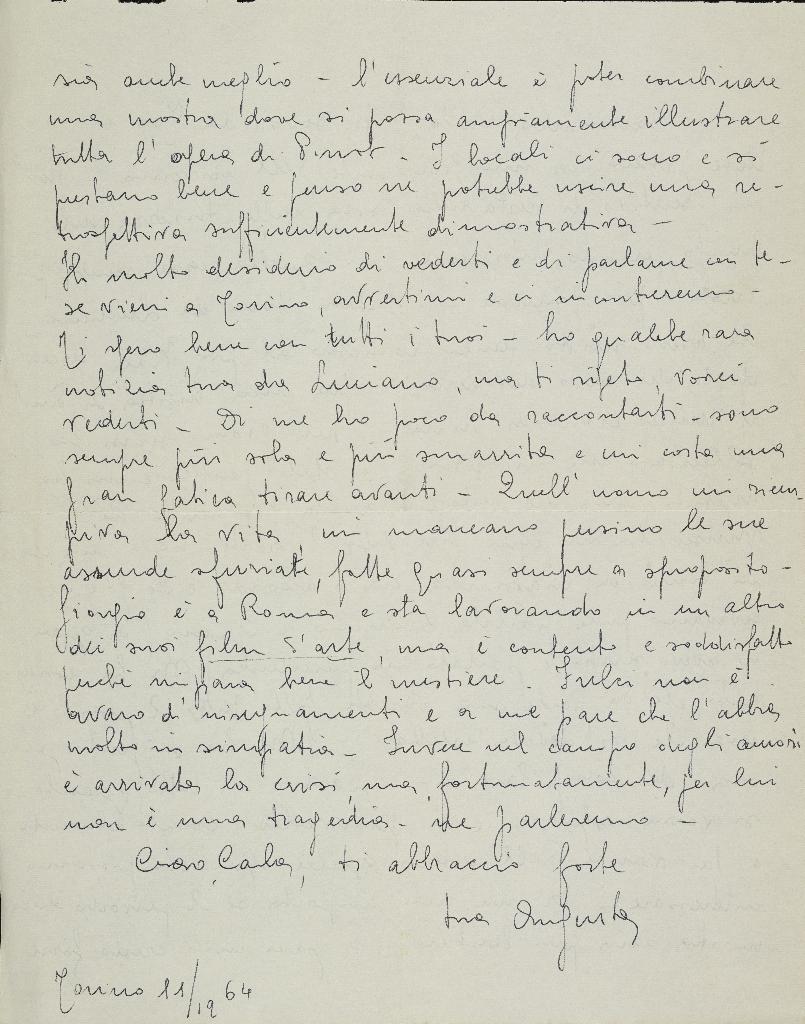 sia anche meglio - l'essenziale è poter combinare
una mostra dove si possa ampiamente illustrare
tutta l'opera di Pinot - I locali ci sono e si
prestano bene e penso ne potrebbe uscire una re-
trospettiva sufficientemente dimostrativa -
Ho molto desiderio di vederti e di parlarne con te -
se vieni a Torino, avvertimi e ci incontreremo -
Ti spero bene con tutti i tuoi - ho qualche rara
notizia tua da Luciano, ma ti ripeto, vorrei
vederti - Di me ho poco da raccontarti - sono
sempre più sola e più smarrita e mi costa una
gran fatica tirare avanti - Quell'uomo mi riem-
piva la vita, mi mancano persino le sue
assurde sfuriate, fatte quasi sempre a sproposito -
Giorgio è a Roma e sta lavorando in un altro
dei suoi film S'arte, ma è contento e soddisfatto
perché impara bene il mestiere. Fulci non è
avaro d'insegnamenti e a me pare che l'abbia
molto in simpatia - Invece nel campo degli amori
è arrivata la crisi, ma, fortunatamente, per lui
non è una tragedia - ne parleremo -
Ciao, Carla, ti abbraccio forte
tua Augusta
Torino 11/19 64